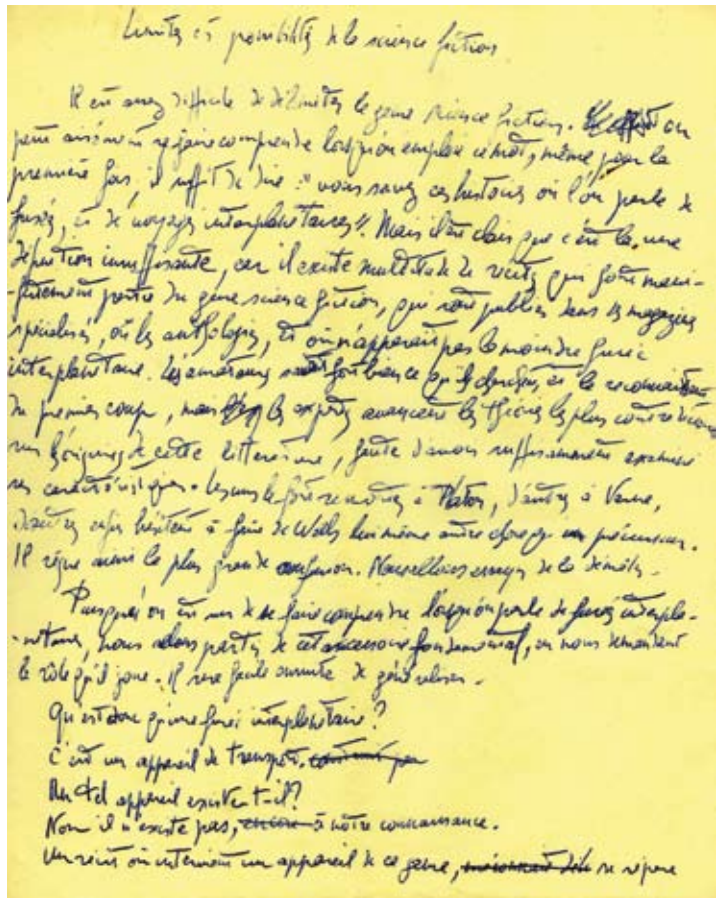 Limites et possibilités de la science fiction
Il est assez difficile de délimiter le genre science fiction. on
peut aisément se faire comprendre lorsqu'on emploie ce mot, même pour la
première fois, il suffit de dire : "vous savez ces histoires où l'on parle de
fusées, et de voyages interplanétaires". Mais il est clair que c'est là une
définition insuffisante, car il existe multitude de récits qui font mani-
-festement partie du genre science fiction, qui sont publiés dans les magazines
spécialisés, ou les anthologies, et où n'apparaît pas la moindre fusée
interplanétaire. Les amateurs savent fort bien ce qu'ils cherchent, et le reconnaissent
du premier coup, mais les experts avancent les théories les plus contradictoires
sur les origines de cette littérature, faute d'avoir suffisamment examiné
ses caractéristiques. Les uns la font remonter à Platon, d'autres à Verne,
d'autres enfin hésitent à faire de Wells lui même autre chose qu'un précurseur.
Il règne ainsi la plus grande confusion. Nous allons essayer de la démêler.
Puisqu'on est sûr de se faire comprendre lorsqu'on parle de fusées interpla-
-nétaires, nous allons partir de cet accessoire fondamental, en nous demandant
le rôle qu'il joue. Il sera facile ensuite de généraliser.
Qu'est donc qu'une fusée interplanétaire?
C'est un appareil de transport.
Un tel appareil existe-t-il?
Non il n'existe pas, à notre connaissance.
Un récit où intervient un appareil de ce genre, se sépare